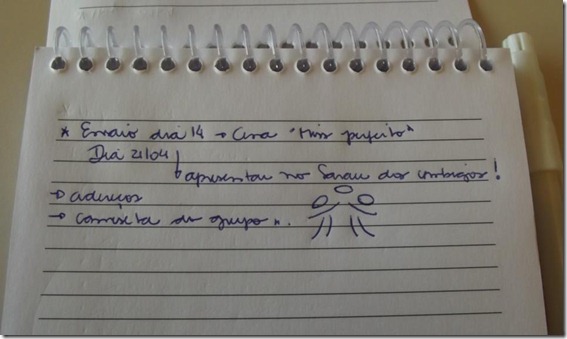 * Ensaio dia 14 → Cena "Mim perfeito"
Dia 21/04
apresentar no Sarau dos umbigos!
→ adereços
→ camiseta do grupo